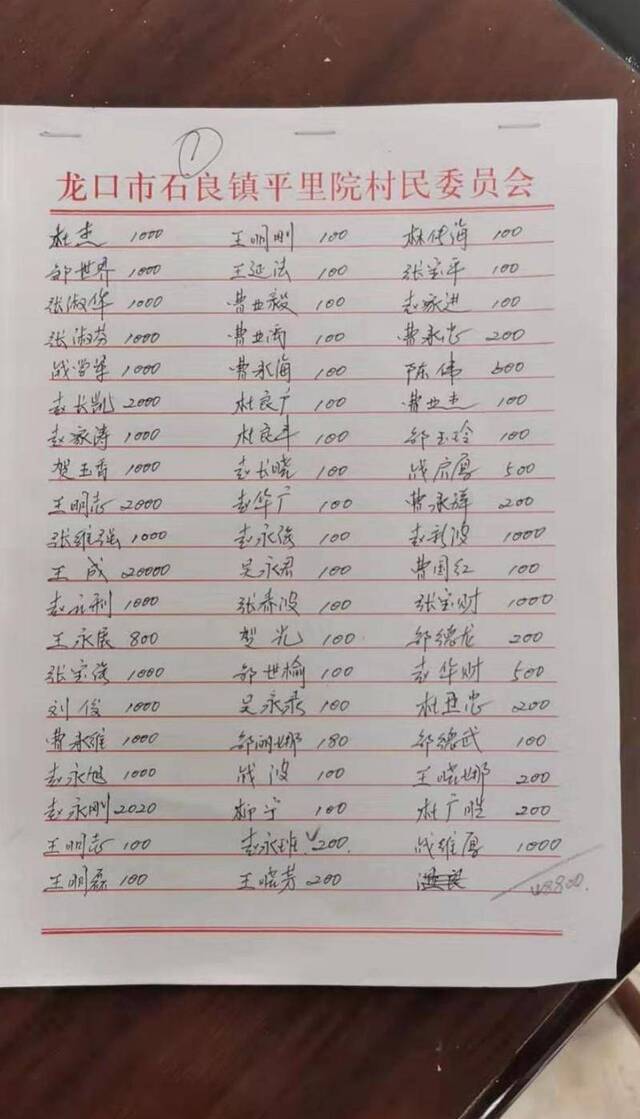 ①
龙口市石良镇平里院村民委员会
杜杰 1000 王明刚 100 林代海 100
邹世界 1000 王延法 100 张宝平 100
张淑华 1000 曹世毅 100 赵家进 100
张淑芬 1000 曹世禹 100 曹永忠 200
战学军 1000 曹永海 100 陈伟 500
赵长凯 2000 杜良广 100 曹世杰 100
赵家涛 1000 杜良丰 100 邹玉玲 100
贺玉香 1000 赵长晓 100 战启厚 500
王明志 2000 赵华广 100 曹永辉 200
张维强 1000 赵永强 100 赵新波 1000
王成 20000 吴永君 100 曹国红 100
赵永利 1000 张春波 100 张宝财 1000
王永展 800 贺光 100 邹德龙 200
张宝强 1000 邹世榆 100 赵华财 500
刘俊 1000 吴永录 100 杜丑忠 200
曹永维 1000 邹丽娜 180 邹德武 100
赵永旭 1000 战波 100 王晓娜 200
赵永刚 2020 柳宁 100 杜广胜 200
王明志 100 赵永琟 200 战维厚 1000
王明磊 100 王晓芳 200